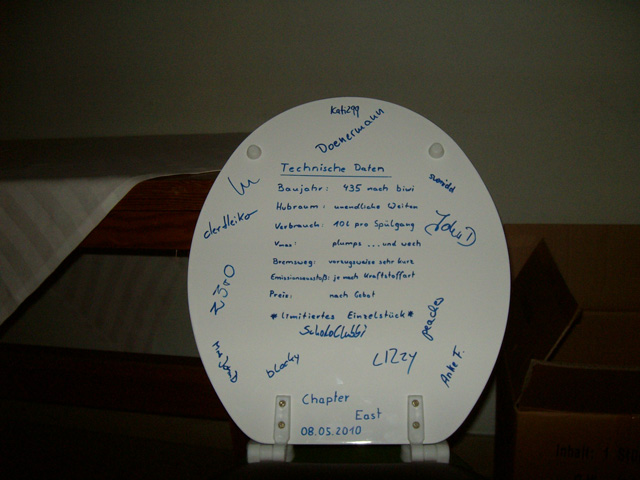 Kati299
Doenermann
Technische Daten
Baujahr: 435 nach biwi
Hubraum: unendliche Weiten
Verbrauch: 10L pro Spülgang
Vmax: plumps ... und wech
Bremsweg: vorzugsweise sehr kurz
Emissionsausstoß: je nach Kraftstoffart
Preis: nach Gebot
* Limitiertes Einzelstück *
derHeiko
peaches
blacky
Lizzy
Anke F.
Chapter
East
08.05.2010
Inhalt: 1